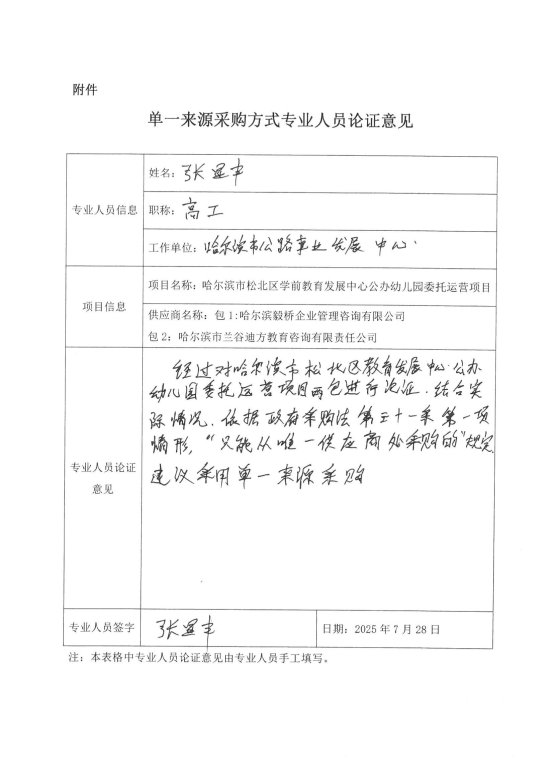 附件
单一来源采购方式专业人员论证意见
专业人员信息
姓名：张显丰
职称：高工
工作单位：哈尔滨市公路事业发展中心.
项目信息
项目名称：哈尔滨市松北区学前教育发展中心公办幼儿园委托运营项目
供应商名称：包1:哈尔滨毅桥企业管理咨询有限公司
包2：哈尔滨市兰谷迪方教育咨询有限责任公司
专业人员论证
意见
经过对哈尔滨市松北区教育发展中心公办
幼儿园委托运营项目两包进行论证，结合实
际情况，依据政府采购法第三十一条第一项
情形，“只能从唯一供应商处采购的”规定
建议采用单一来源采购
专业人员签字
张显丰
日期：2025年7月28日
注：本表格中专业人员论证意见由专业人员手工填写。